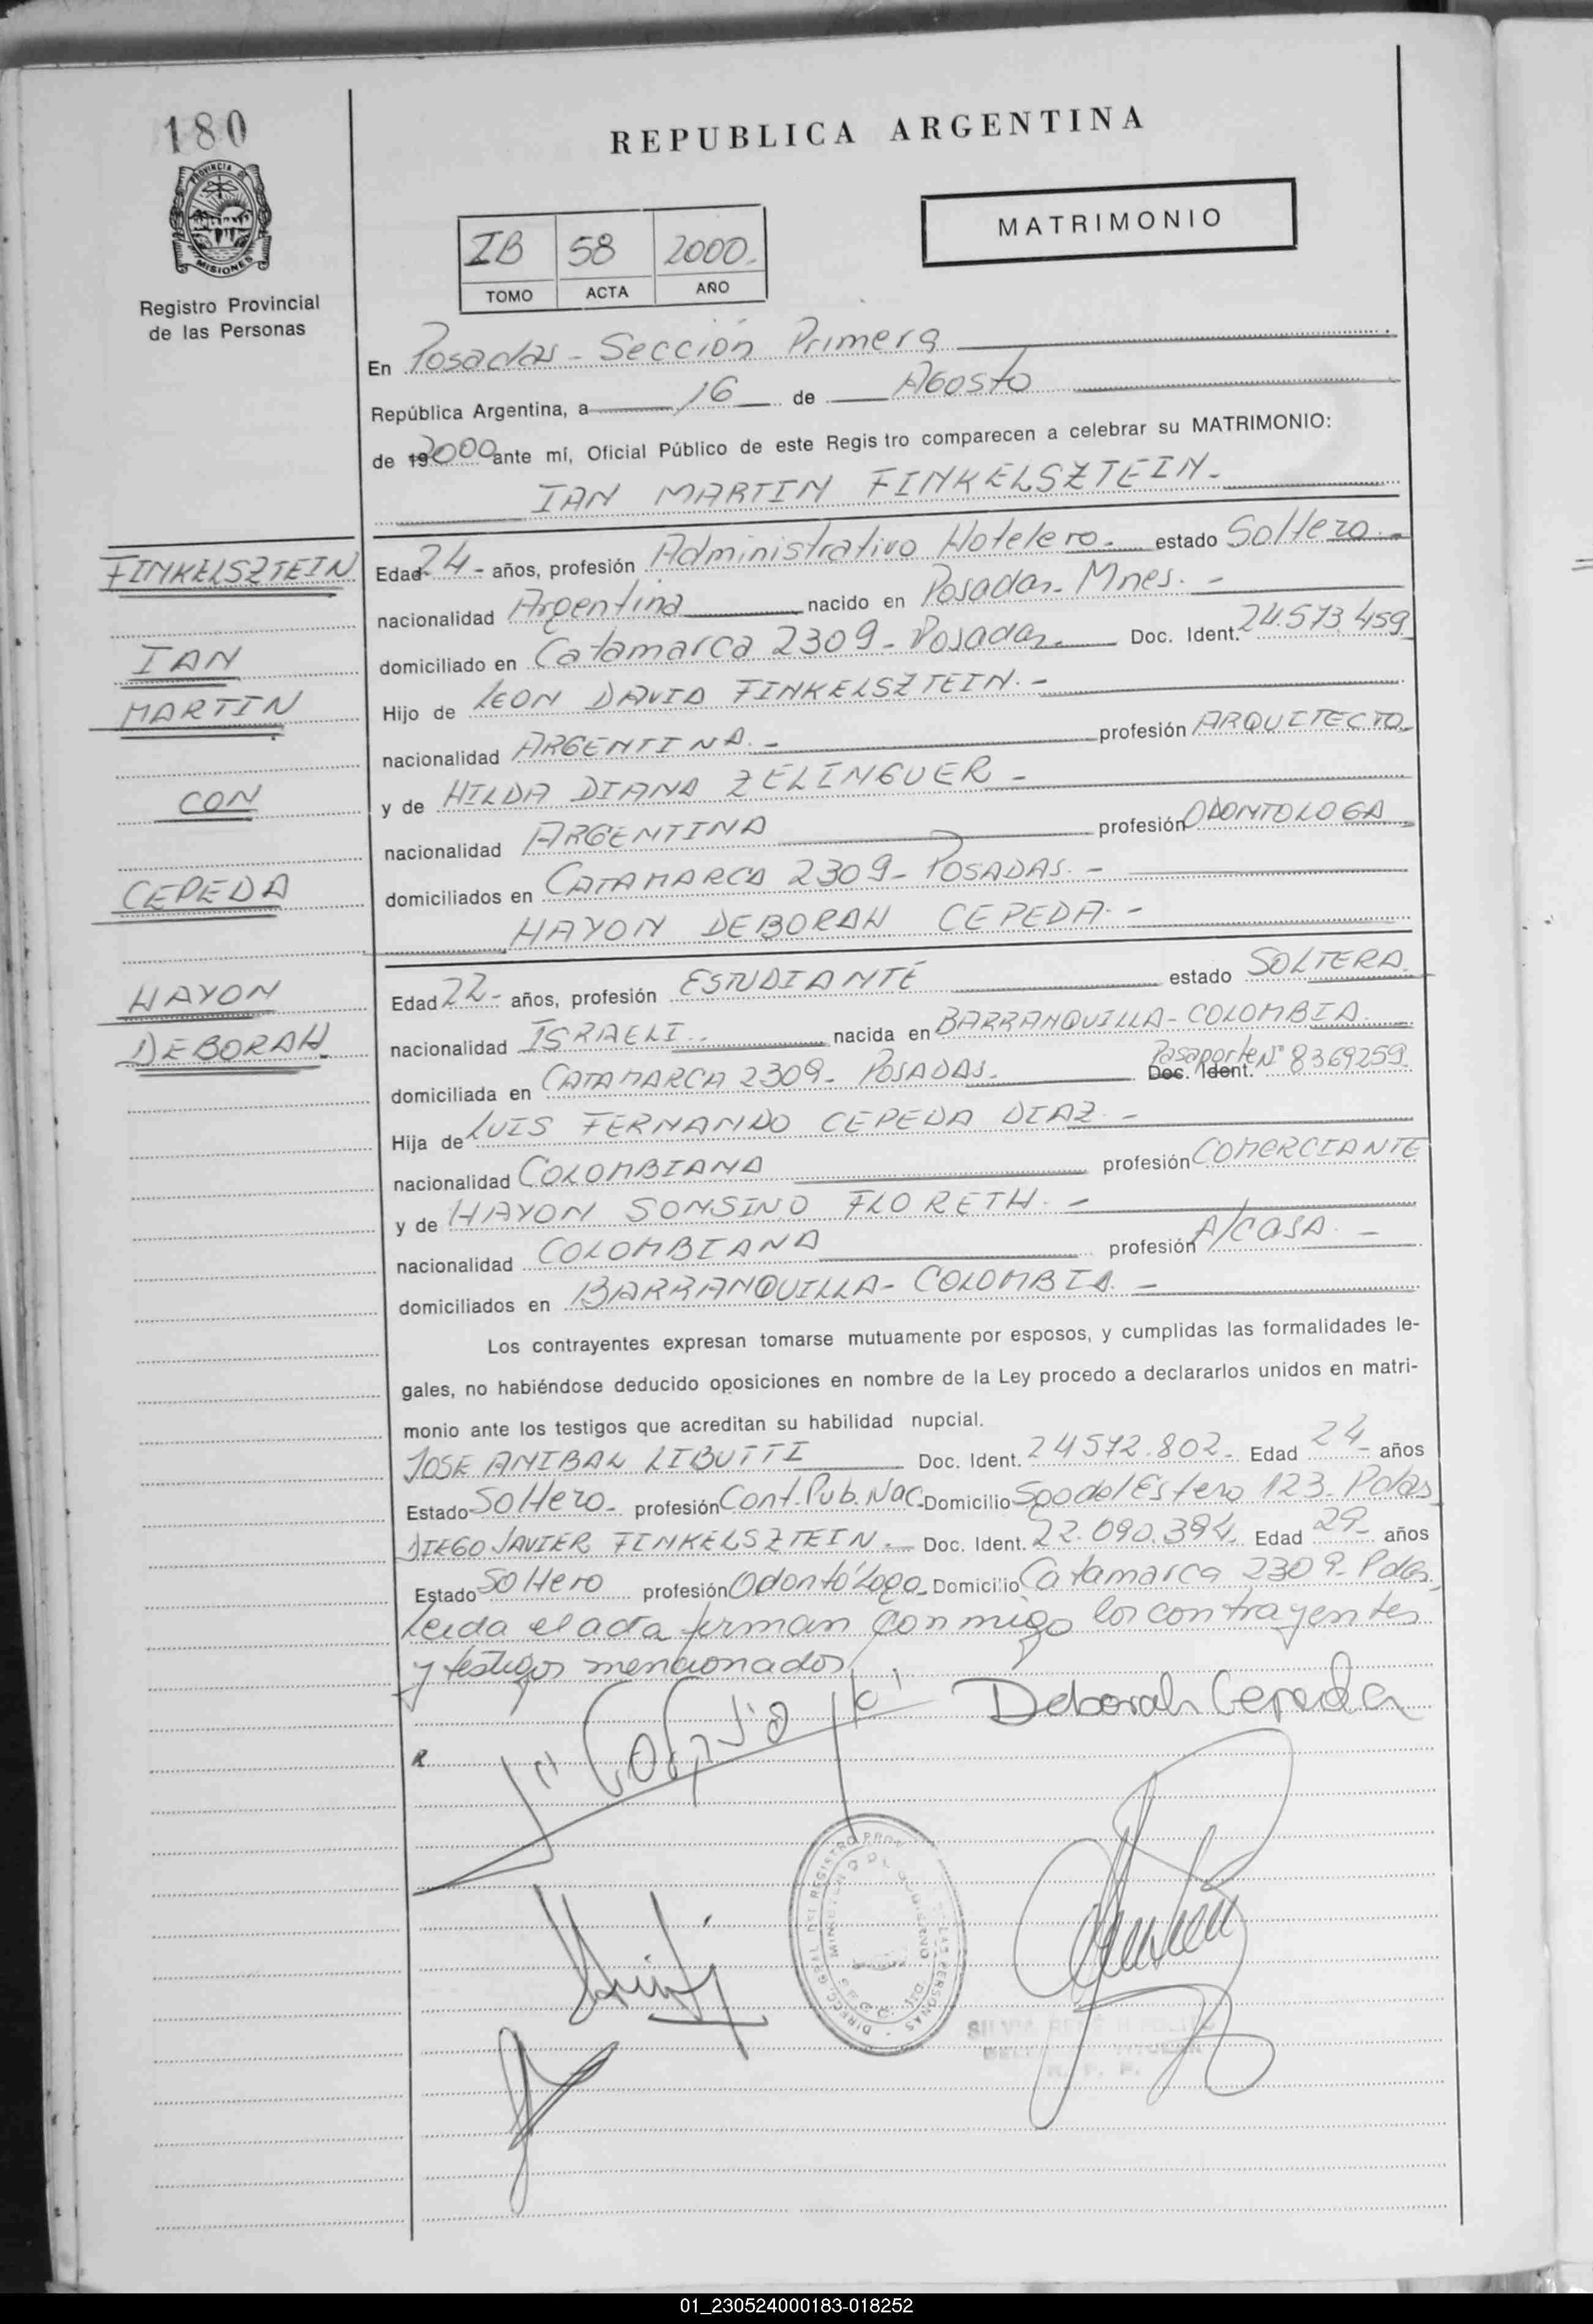 180
REPUBLICA ARGENTINA
PROVINCIA DE
MISIONES
Registro Provincial
de las Personas
IB 58 2000.
TOMO ACTA AÑO
MATRIMONIO
En Posadas - Sección Primera
República Argentina, a 16 de Agosto
de 2000 ante mí, Oficial Público de este Regis tro comparecen a celebrar su MATRIMONIO:
IAN MARTIN FINKELSZTEIN.-
FINKELSZTEIN
IAN
MARTIN
CON
CEPEDA
HAYON
DEBORAH
Edad 24 - años, profesión Administrativo Hotelero.- estado Soltero.-
nacionalidad Argentina nacido en Posadas- Mnes.-
domiciliado en Catamarca 2309 - Posadas.- Doc. Ident. 24.573.459
Hijo de LEON DAVID FINKELSZTEIN.-
nacionalidad ARGENTINA.- profesión ARQUITECTO.
y de HILDA DIANA ZELINGUER -
nacionalidad ARGENTINA profesión ODONTOLOGA
domiciliados en CATAMARCA 2309 - POSADAS.-
HAYON DEBORAH CEPEDA.-
Edad 22- años, profesión ESTUDIANTE estado SOLTERA.
nacionalidad ISRAELI.. nacida en BARRANQUILLA - COLOMBIA.
domiciliada en CATAMARCA 2309- POSADAS.- Doc. Ident. Pasaporte N° 8369259.
Hija de LUIS FERNANDO CEPEDA DIAZ.-
nacionalidad COLOMBIANA profesión COMERCIANTE
y de HAYON SONSINO FLORETH.-
nacionalidad COLOMBIANA profesión A/CASA.-
domiciliados en BARRANQUILLA - COLOMBIA.-
Los contrayentes expresan tomarse mutuamente por esposos, y cumplidas las formalidades le-
gales, no habiéndose deducido oposiciones en nombre de la Ley procedo a declararlos unidos en matri-
monio ante los testigos que acreditan su habilidad nupcial.
JOSE ANIBAL LIBUTTI Doc. Ident. 24572.802- Edad 24- años
Estado Soltero- profesión Cont. Pub. Nac.- Domicilio Sgo del Estero 123- Pdas
DIEGO JAVIER FINKELSZTEIN.- Doc. Ident. 22.090.394. Edad 29- años
Estado Soltero profesión Odontólogo- Domicilio Catamarca 2309- Pdas.
Leida el acta firman conmigo los contrayentes
y testigos mencionados
Deborah Cepeda
R
01_230524000183-018252